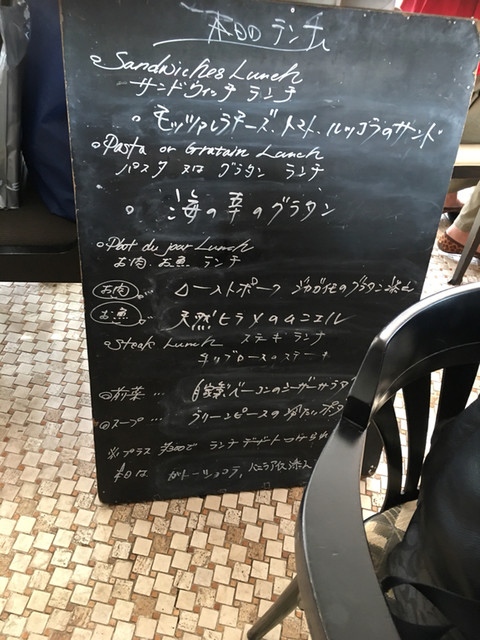 本日の ランチ
Sandwiches Lunch
サンドウィッチ ランチ
モッツァレラチーズ、トマト、ルッコラのサンド
Pasta or Gratain Lunch
パスタ 又は グラタン ランチ
海の幸のグラタン
Plat du jour Lunch
お肉、お魚 ランチ
お肉 … ローストポーク ジャガイモのグラタン添え
お魚 … 天然ヒラメのムニエル
Steak Lunch ステーキ ランチ
リブロースのステーキ
前菜 … 自家製ベーコンのシーザーサラダ
スープ … グリーンピースの冷たいポタ
※プラス ¥300で ランチデザートつけられ
本日は ガトーショコラ, バニラアイス添え